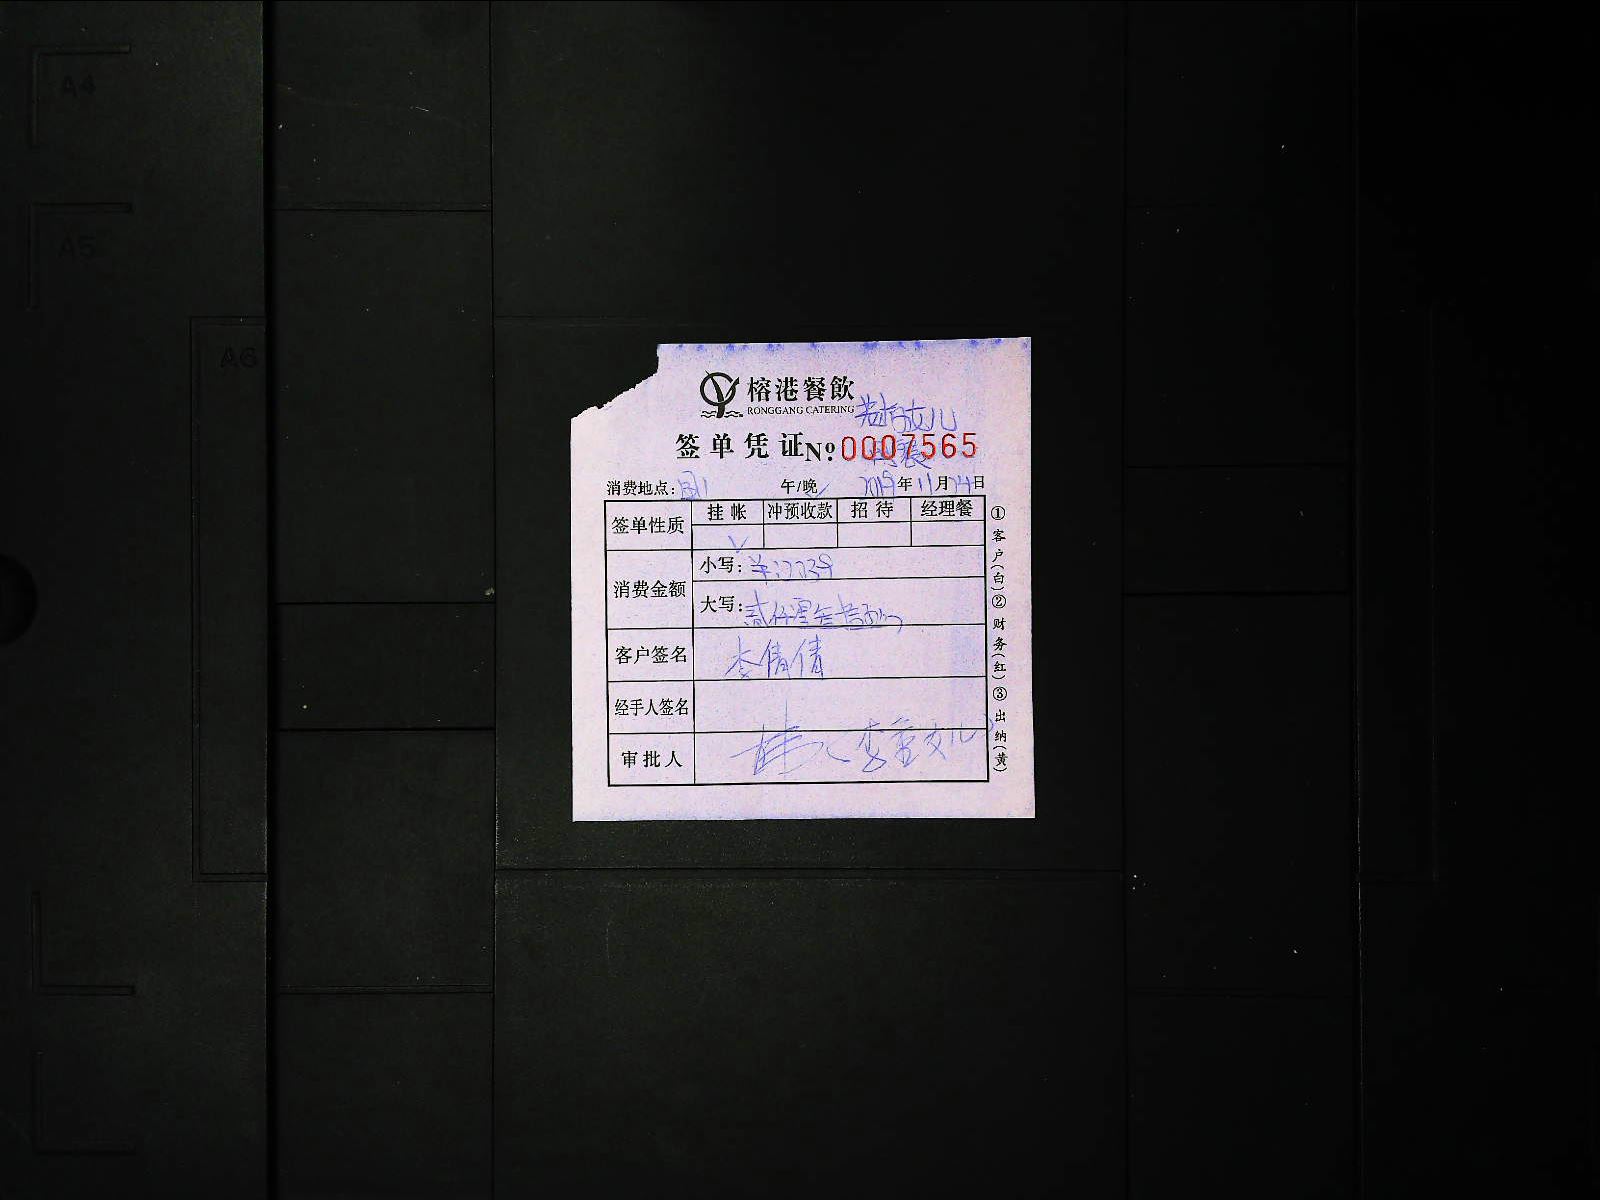 A4
A5
A6
榕港餐飲
RONGGANG CATERING
签单凭证 № 0007565
消费地点: 午/晚 2019年11月24日
签单性质 挂帐 冲预收款 招待 经理餐
消费金额
小写:
大写:
客户签名 李倩倩
经手人签名
审批人
①客户(白)②财务(红)③出纳(黄)